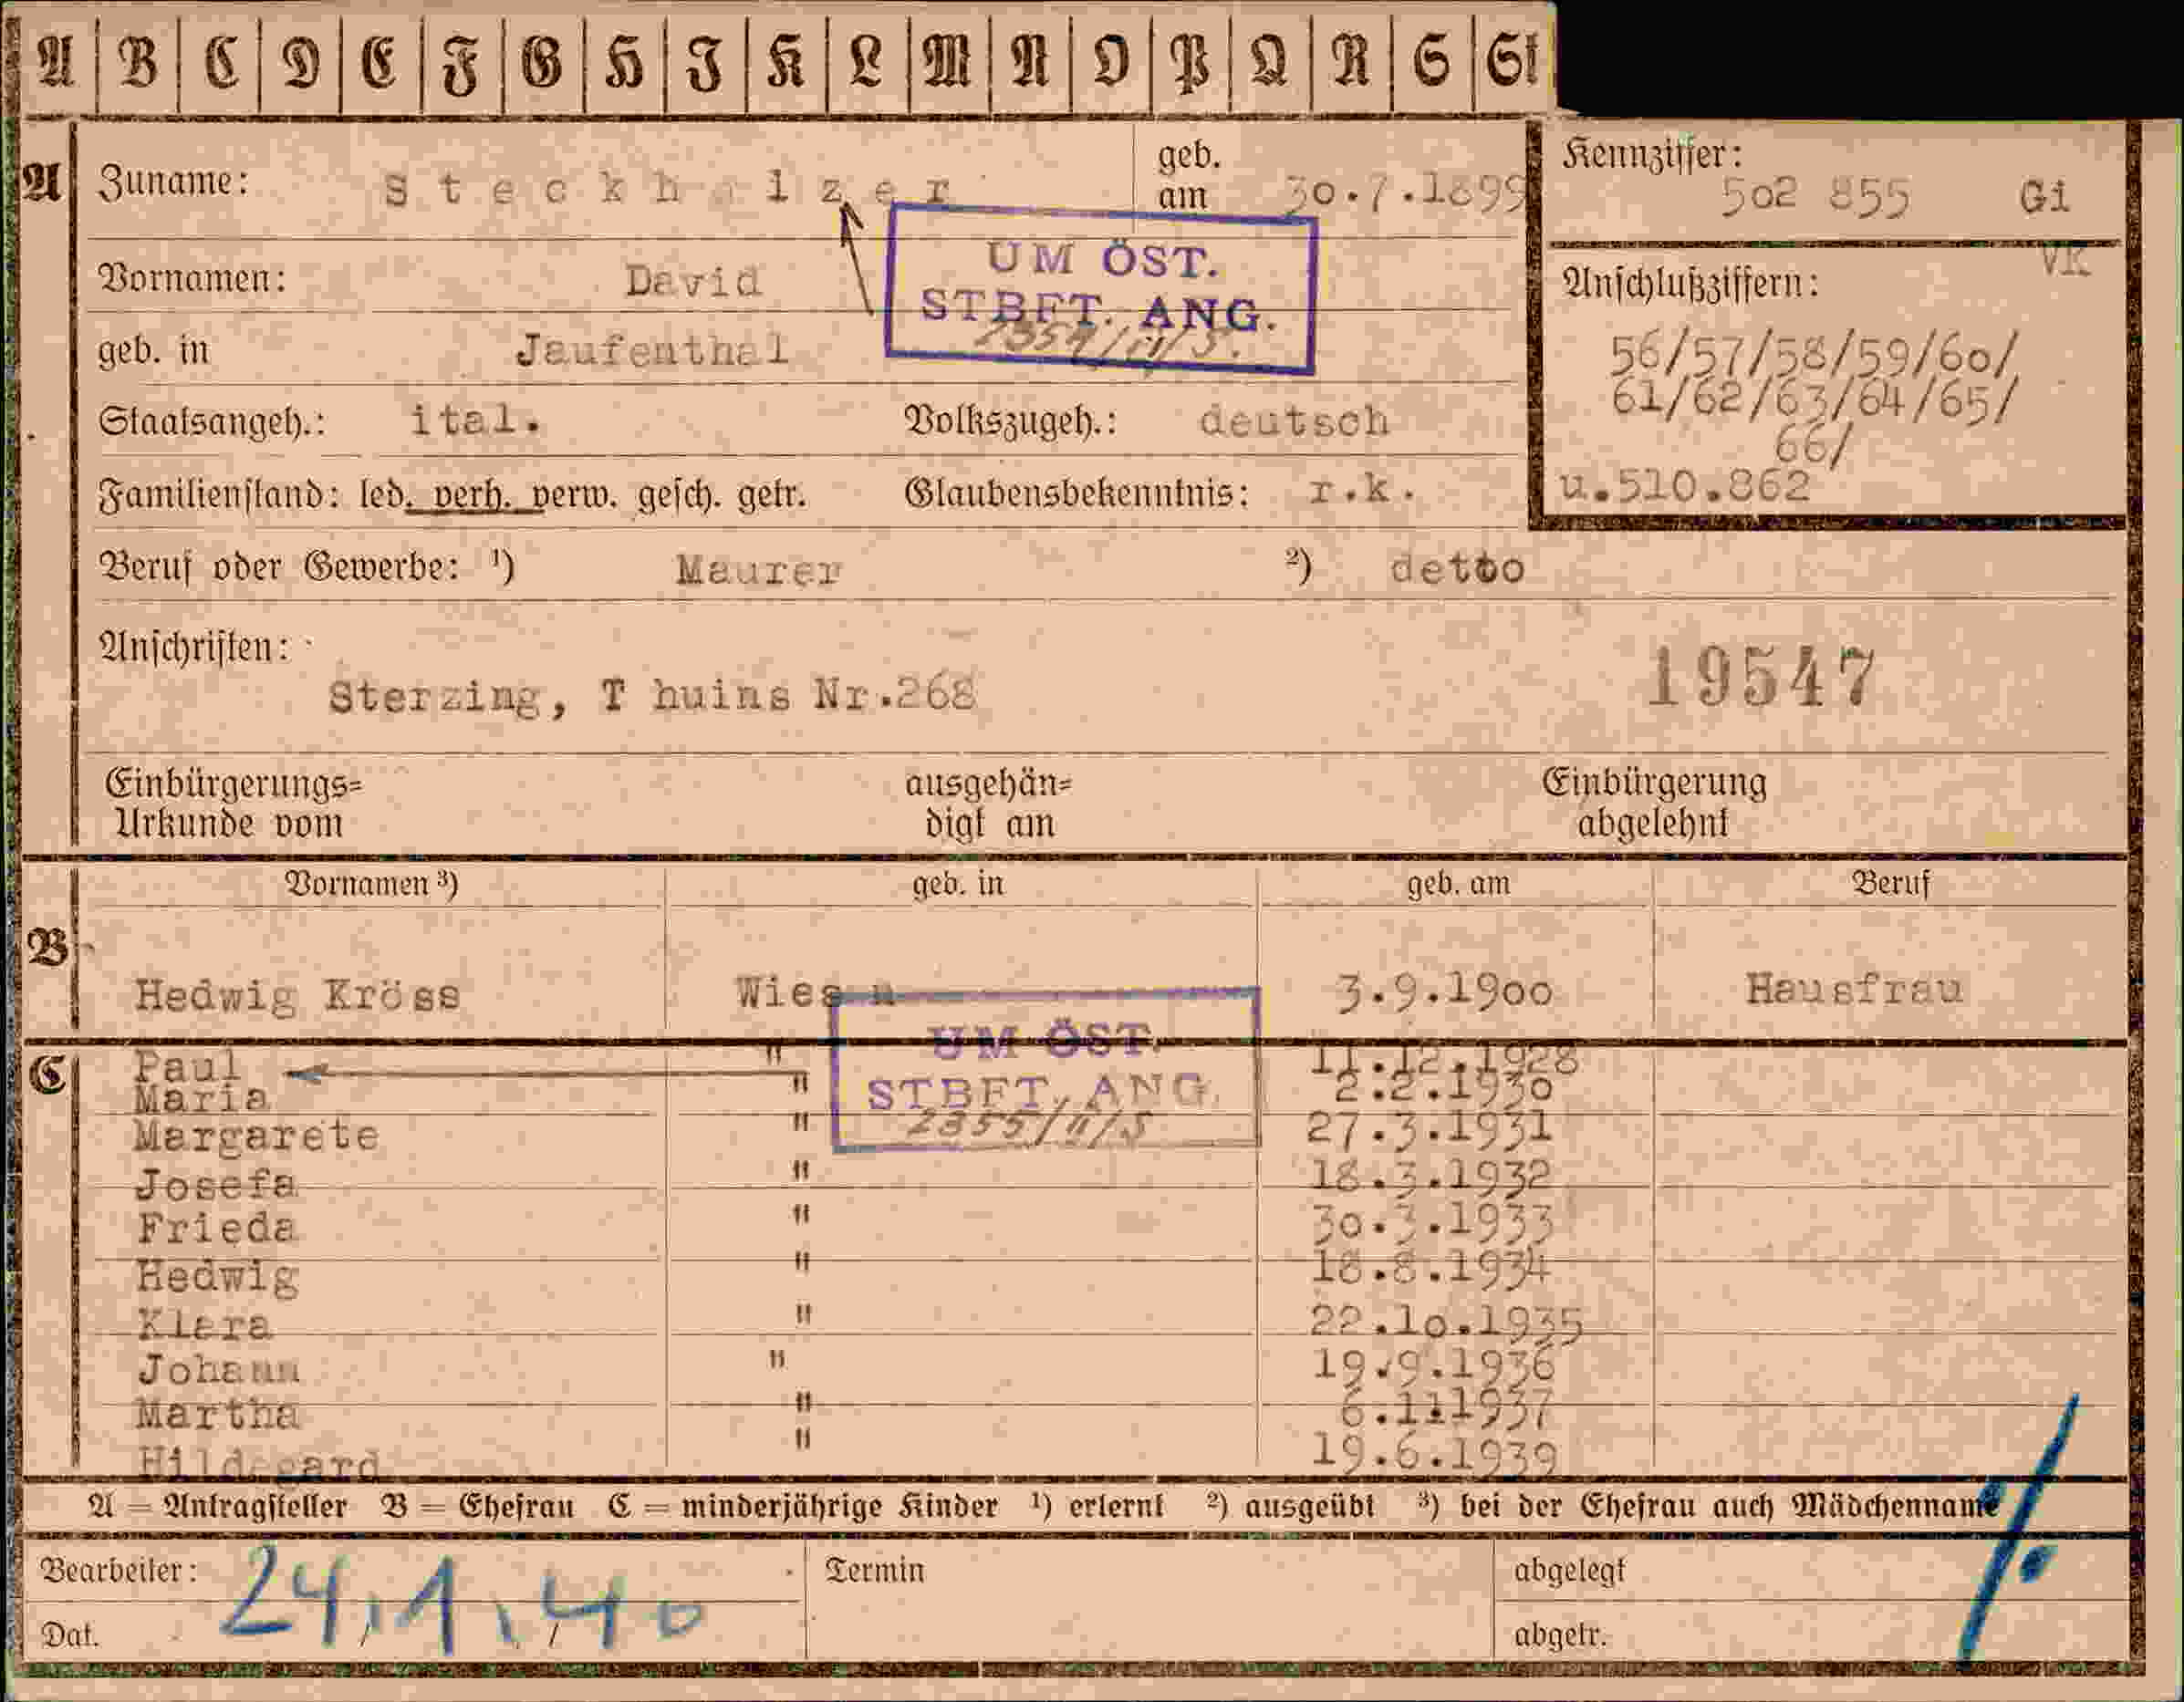 A B C D E F G H I K L M N O P Q R S St
A Zuname: Steckholzer geb. am 30.7.1899
Kennziffer: 502 855 Gi
VK
Vornamen: David
UM ÖST.
STBFT. ANG.
geb. in Jaufenthal
Anschlußziffern:
56/57/58/59/60/
61/62/63/64/65/
66/
u.510.862
Staatsangeh.: ital. Volkszugeh.: deutsch
Familienstand: led. verh. verw. gesch. getr. Glaubensbekenntnis: r.k.
Beruf oder Gewerbe: ¹) Maurer ²) detto
Anschriften:
Sterzing, T huins Nr.268
19547
Einbürgerungs= ausgehän= Einbürgerung
Urkunde vom digt am abgelehnt
Vornamen ³) geb. in geb. am Beruf
B
Hedwig Kröss Wiesn 3.9.1900 Hausfrau
UM ÖST.
STBFT. ANG.
2355/II/S
C Paul " 11.12.1928
Maria " 2.2.1930
Margarete " 27.3.1931
Josefa " 18.3.1932
Frieda " 30.3.1933
Hedwig " 18.8.1934
Klara " 22.10.1935
Johann " 19.9.1936
Martha " 6.111937
Hildegard " 19.6.1939
A = Antragsteller B = Ehefrau C = minderjährige Kinder ¹) erlernt ²) ausgeübt ³) bei der Ehefrau auch Mädchenname
Bearbeiter: Termin abgelegt
24.1.40
Dat. abgetr.